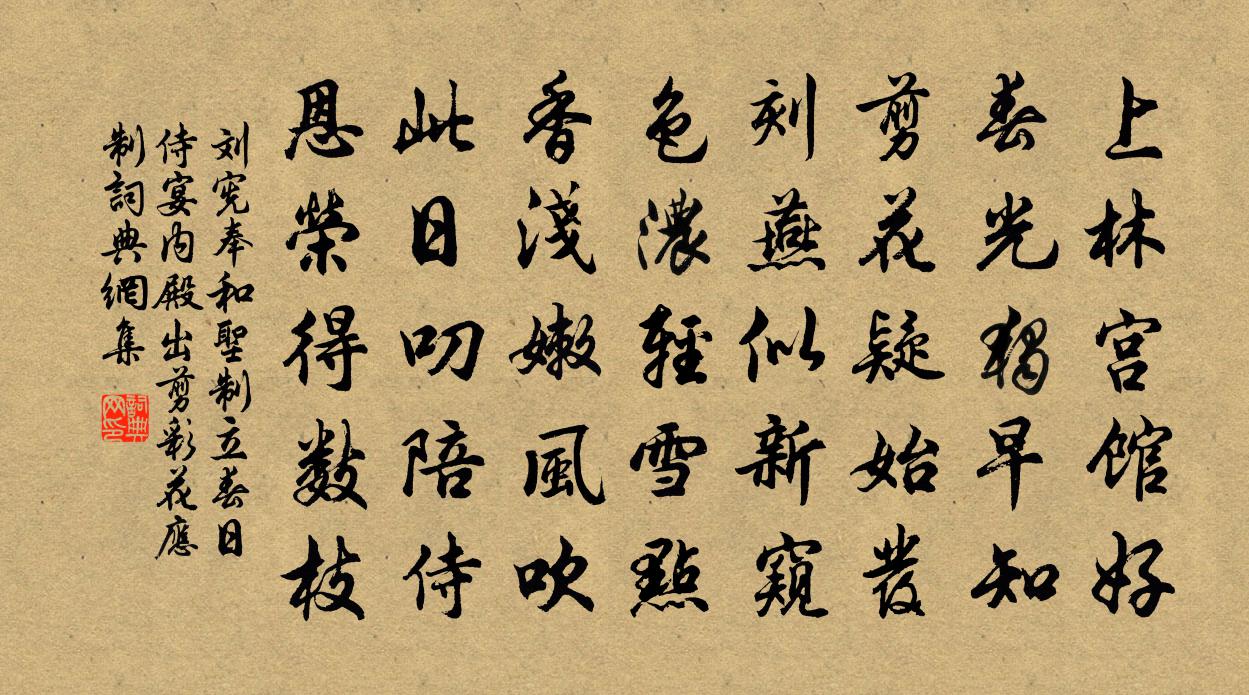 上林宮館好
春光獨早知
剪花疑始發
刻燕似新窺
色濃輕雪點
香淺嫩風吹
此日叨陪侍
恩榮得數枝
刘宪奉和聖制立春日
侍宴内殿出剪彩花應
制詞典網集
詞典
网印